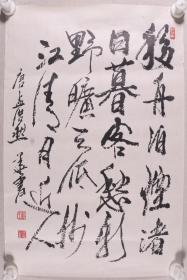 移舟泊煙渚
日暮客愁新
野曠天低樹
江清月近人
唐孟浩然